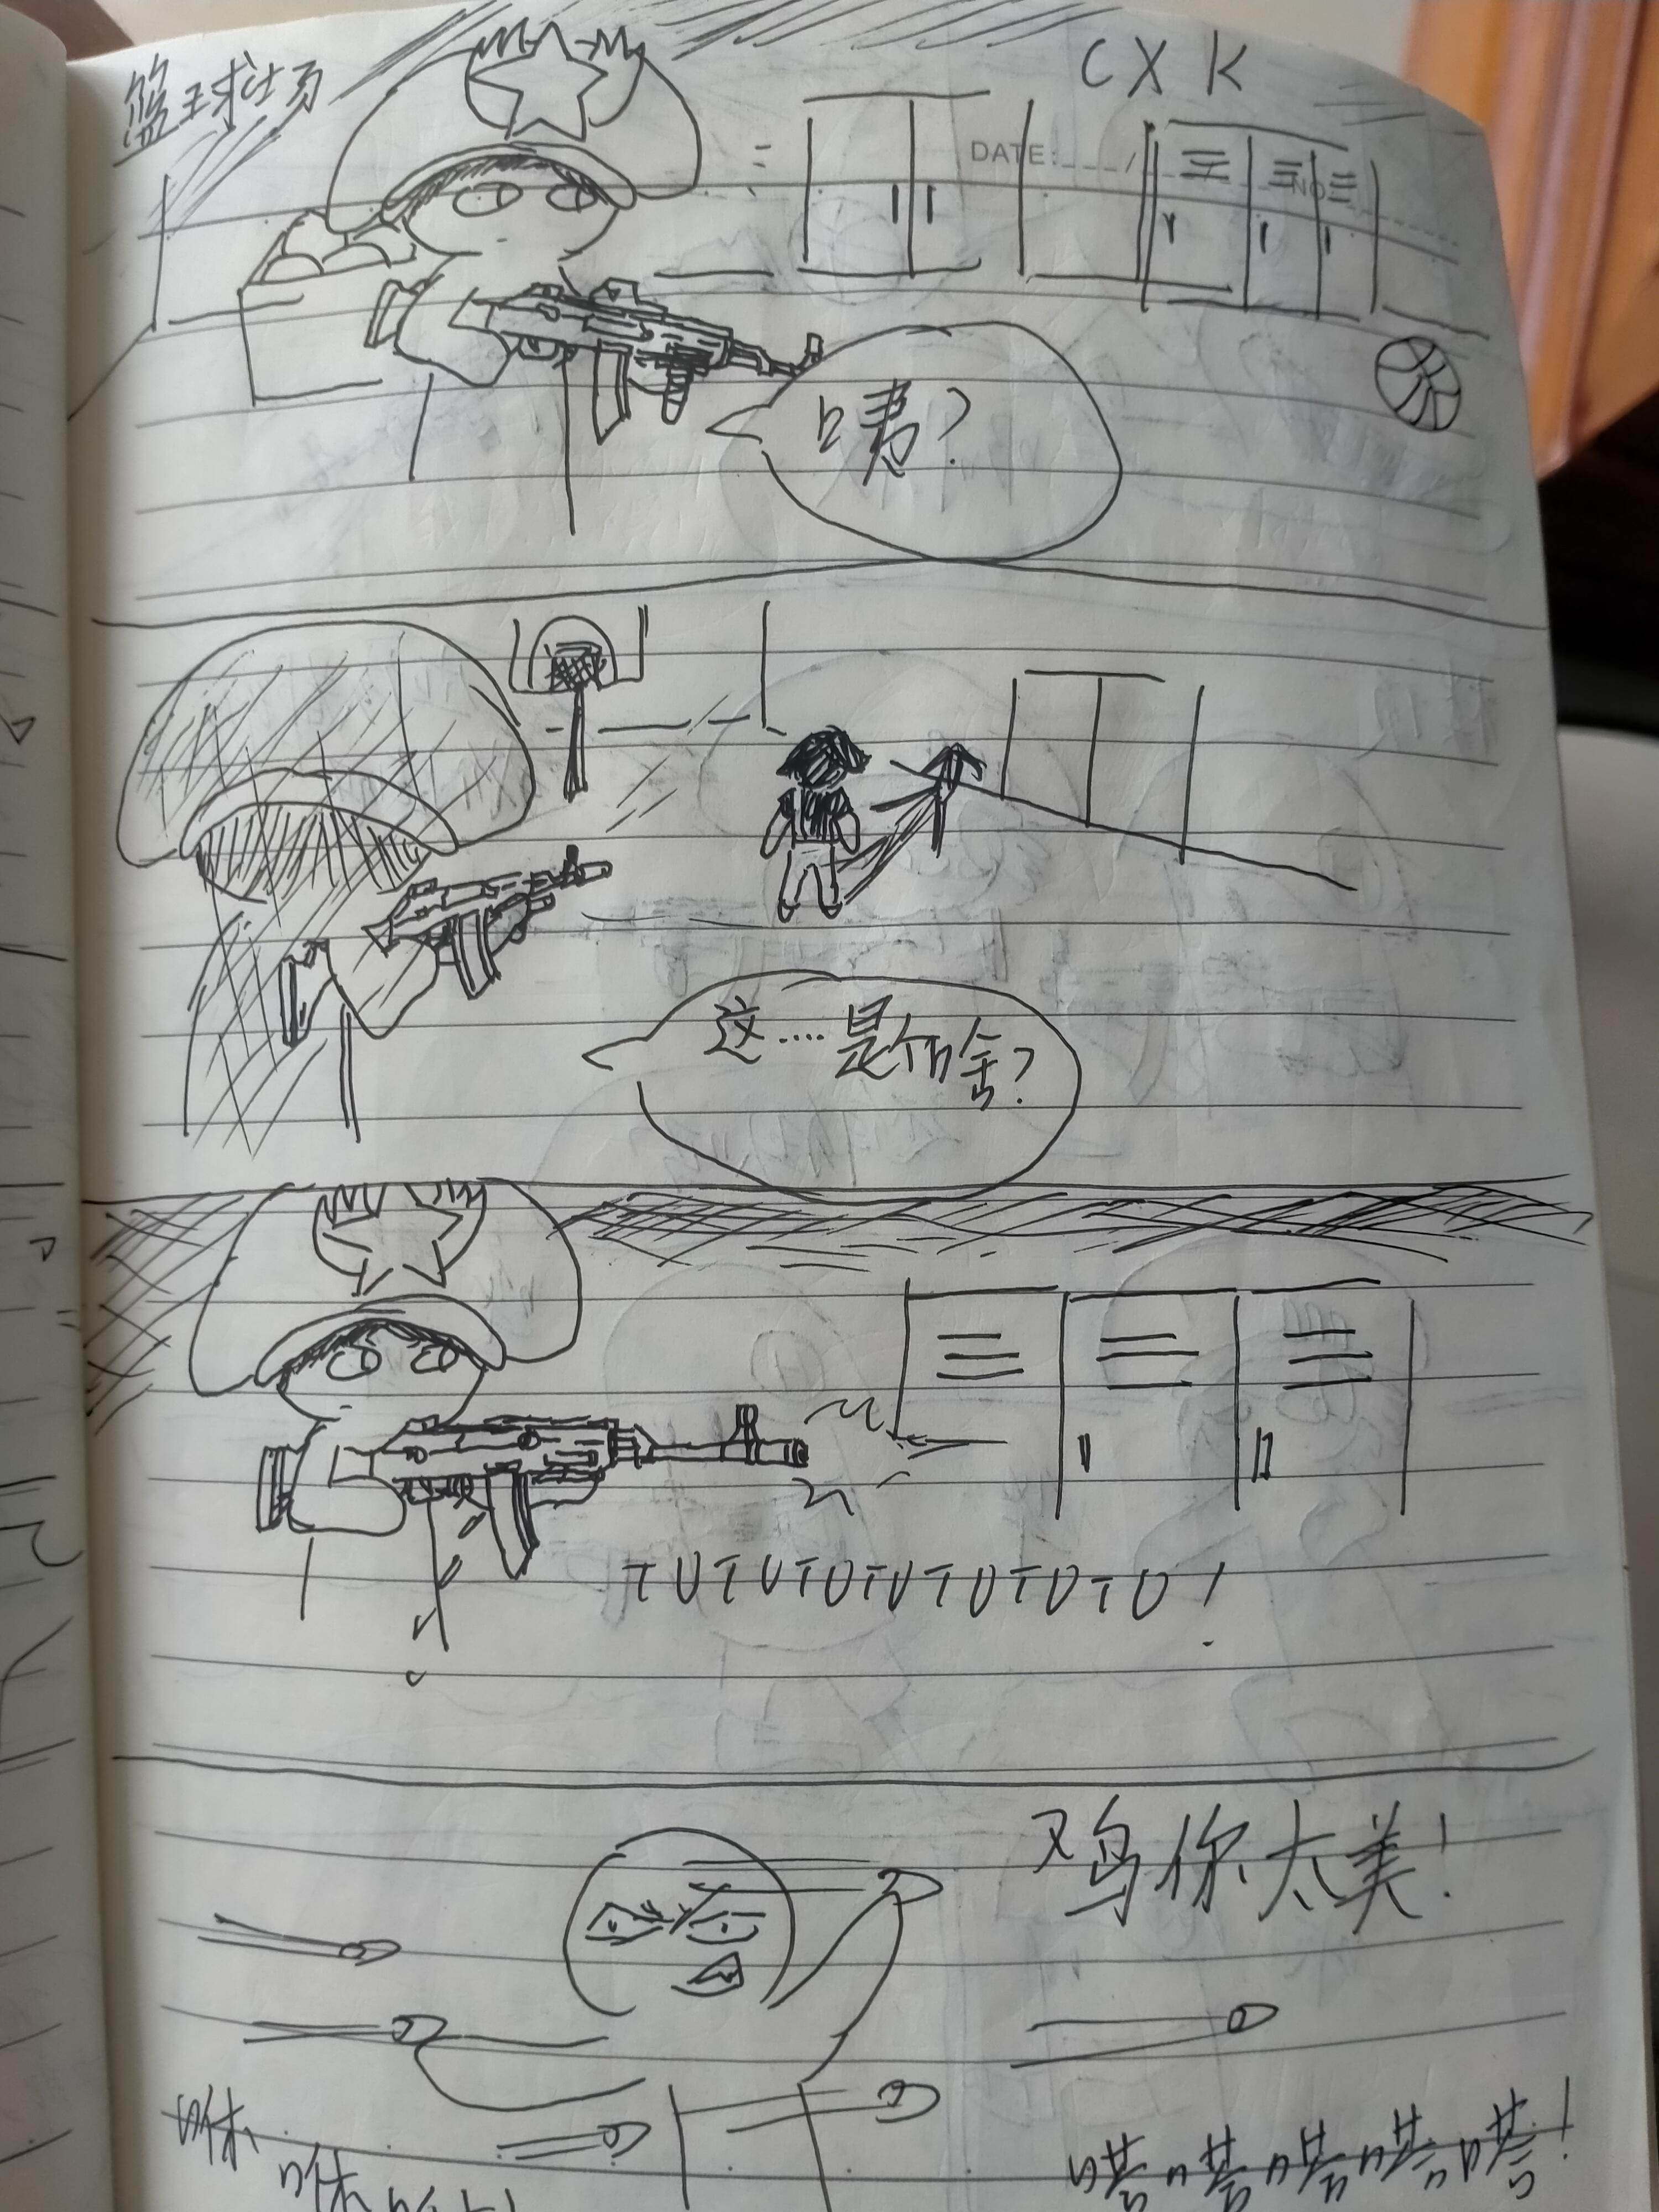 篮球场
CXK
DATE: / NO
咦?
这....是个啥?
TUTUTUTUTUTUTU!
鸡你太美!
咻
咻
嗒嗒嗒嗒嗒!